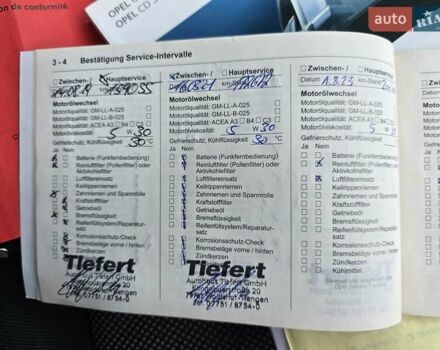 auto RIA
on de conformité
3 - 4 Bestätigung Service-Intervalle
Zwischen- / Hauptservice
159055
Motorölwechsel
Motorölqualität: GM-LL-A-025
Motorölqualität: GM-LL-B-025
Motorölqualität: ACEA A3 B4 C3
Motorölviskosität: 5 W 30
Gefrierschutz, Kühlmittel 30 °C
Ja Nein
Batterie (Funkfernbedienung)
Reinluftfilter (Pollenfilter) oder
Aktivkohlefilter
Luftfiltereinsatz
Keilrippenriemen
Zahnriemen und Spannrolle
Kraftstofffilter
Getriebeöl
Bremsflüssigkeit
Reifenfüllsystem/Reparatur-
satz
Korrosionsschutz-Check
Bremsbeläge vorne / hinten
Zündkerzen
Tiefert
Autohaus Tiefert GmbH
07751 / 8734-0
Zwischen- / Hauptservice
Motorölwechsel
Motorölqualität: GM-LL-A-025
Motorölqualität: GM-LL-B-025
Motorölqualität: ACEA A3 B4 C3
Motorölviskosität: 5 W 30
Gefrierschutz, Kühlmittel 30 °C
Ja Nein
Batterie (Funkfernbedienung)
Reinluftfilter (Pollenfilter) oder
Aktivkohlefilter
Luftfiltereinsatz
Keilrippenriemen
Zahnriemen und Spannrolle
Kraftstofffilter
Getriebeöl
Bremsflüssigkeit
Reifenfüllsystem/Reparatur-
satz
Korrosionsschutz-Check
Bremsbeläge vorne / hinten
Zündkerzen
Tiefert
Autohaus Tiefert GmbH
Tel. 07751 / 8734-0
Zwischen- / Hauptservice
Datum 1.9.23 km-Stand
Motorölwechsel
Motorölqualität: GM-LL-A-025
Motorölqualität: GM-LL-B-025
Motorölqualität: ACEA A3
Motorölviskosität: 5 W
Gefrierschutz, Kühlmittel
Ja Nein
Batterie (Funkfernbedienung)
Reinluftfilter (Pollenfilter) oder
Aktivkohlefilter
Luftfiltereinsatz
Keilrippenriemen
Zahnriemen und Spannrolle
Kraftstofffilter
Getriebeöl
Bremsflüssigkeit
Reifenfüllsystem/Reparatur-
satz
Korrosionsschutz-Check
Bremsbeläge vorne / hinten
Zündkerzen
Kühlmittel